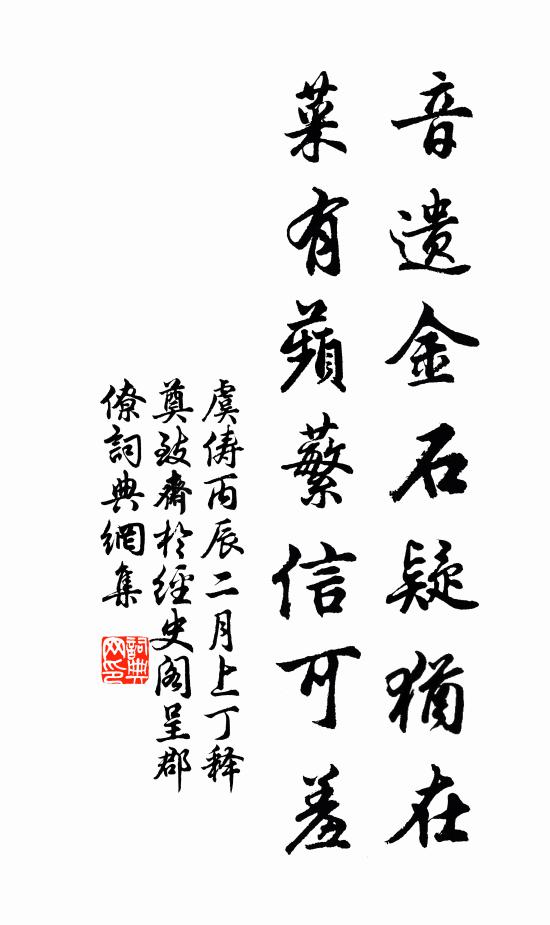 音遺金石疑猶在
菜有蘋蘩信可羞
虞俦丙辰二月上丁释
奠致齋於經史阁呈郡
僚詞典網集
詞典
网印